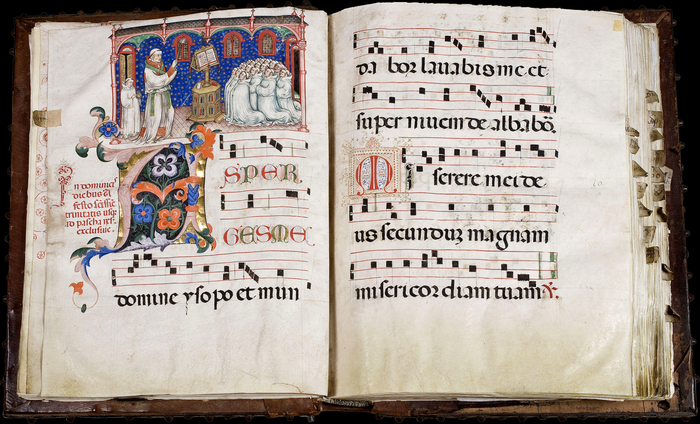 In dominici
diebus a
festo
trinitatis usqȝ
ad pascha
exclusiue.
ASPER
GES ME
domine ysopo et mun
da bor lauabis me et
super niuem de albabō.
Miserere mei de
us secunduz magnam
misericordiam tuam ℣.